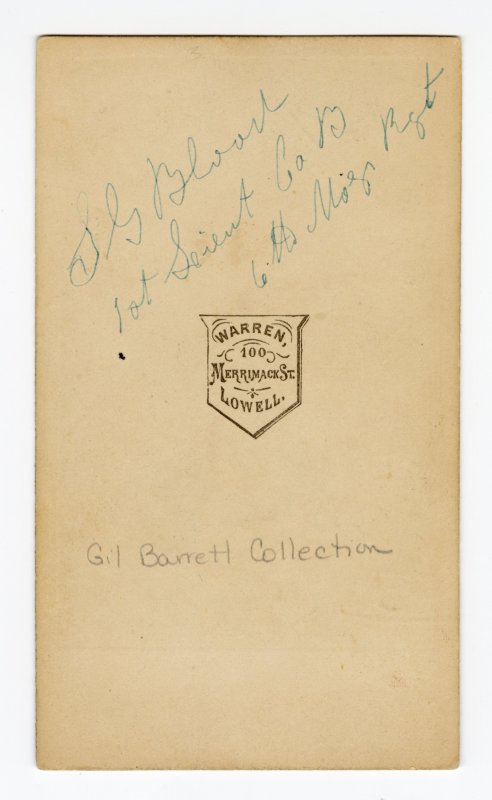 S G Blood
1st Lieut Co B
6th Mas Rgt
WARREN,
100
MERRIMACK ST.
LOWELL.
Gil Barrett Collection